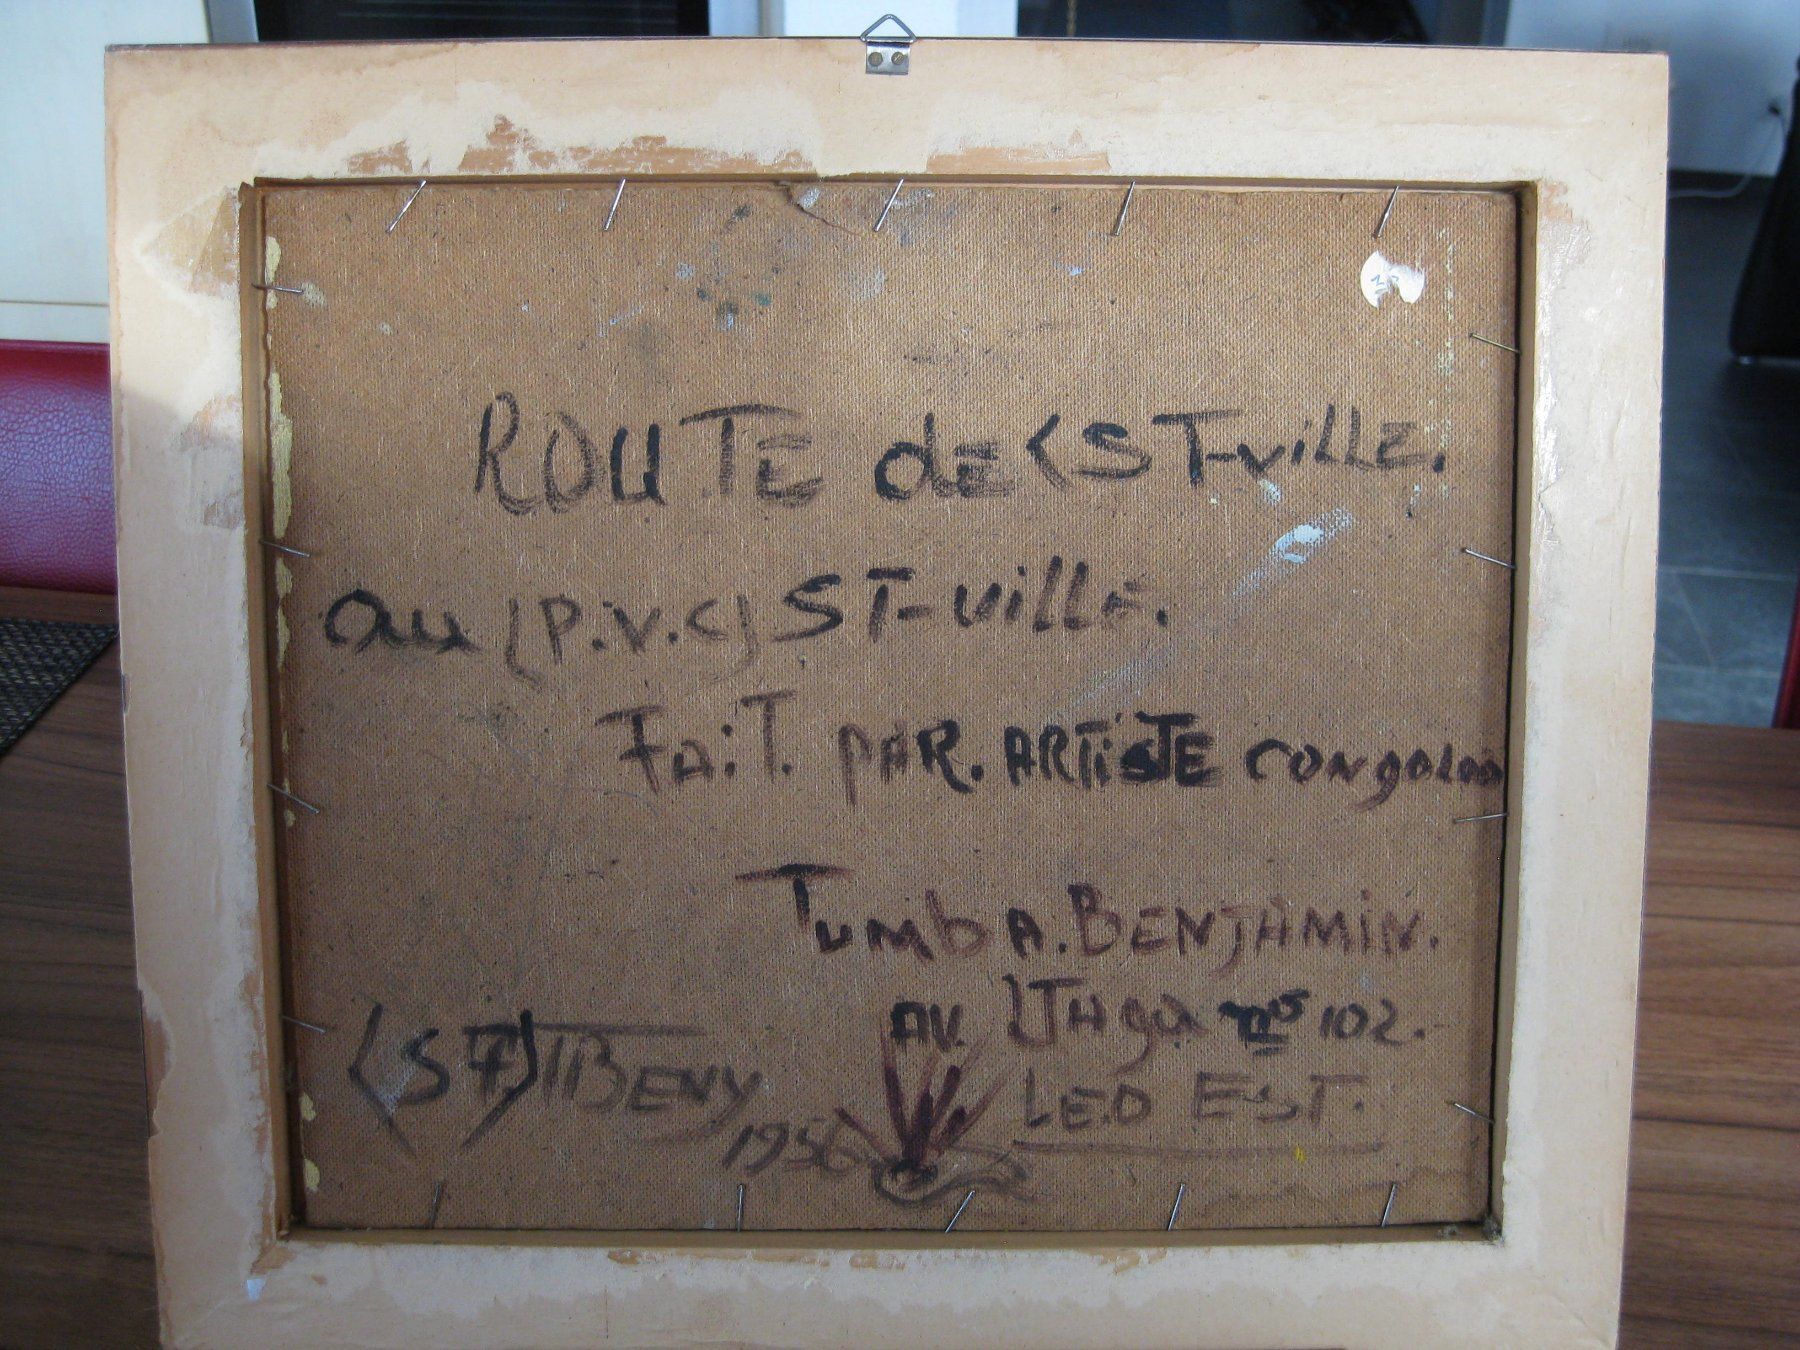 ROUTE de (ST-ville.
au (P.V.C) ST-ville.
FaiT. pAR. ARTiSTE congolais
TumbA. BENJAMIN.
AV. ITAga no 102.
(ST) BENY
LEO EST.
1956